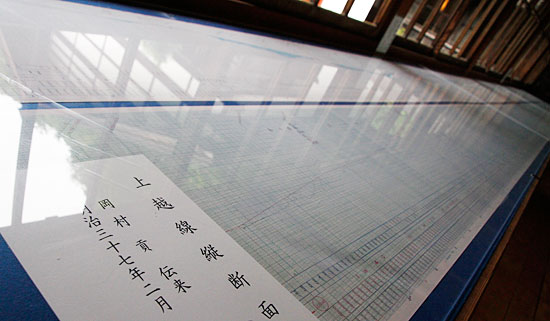 上越線縦断面
岡村貢伝来
明治三十七年二月